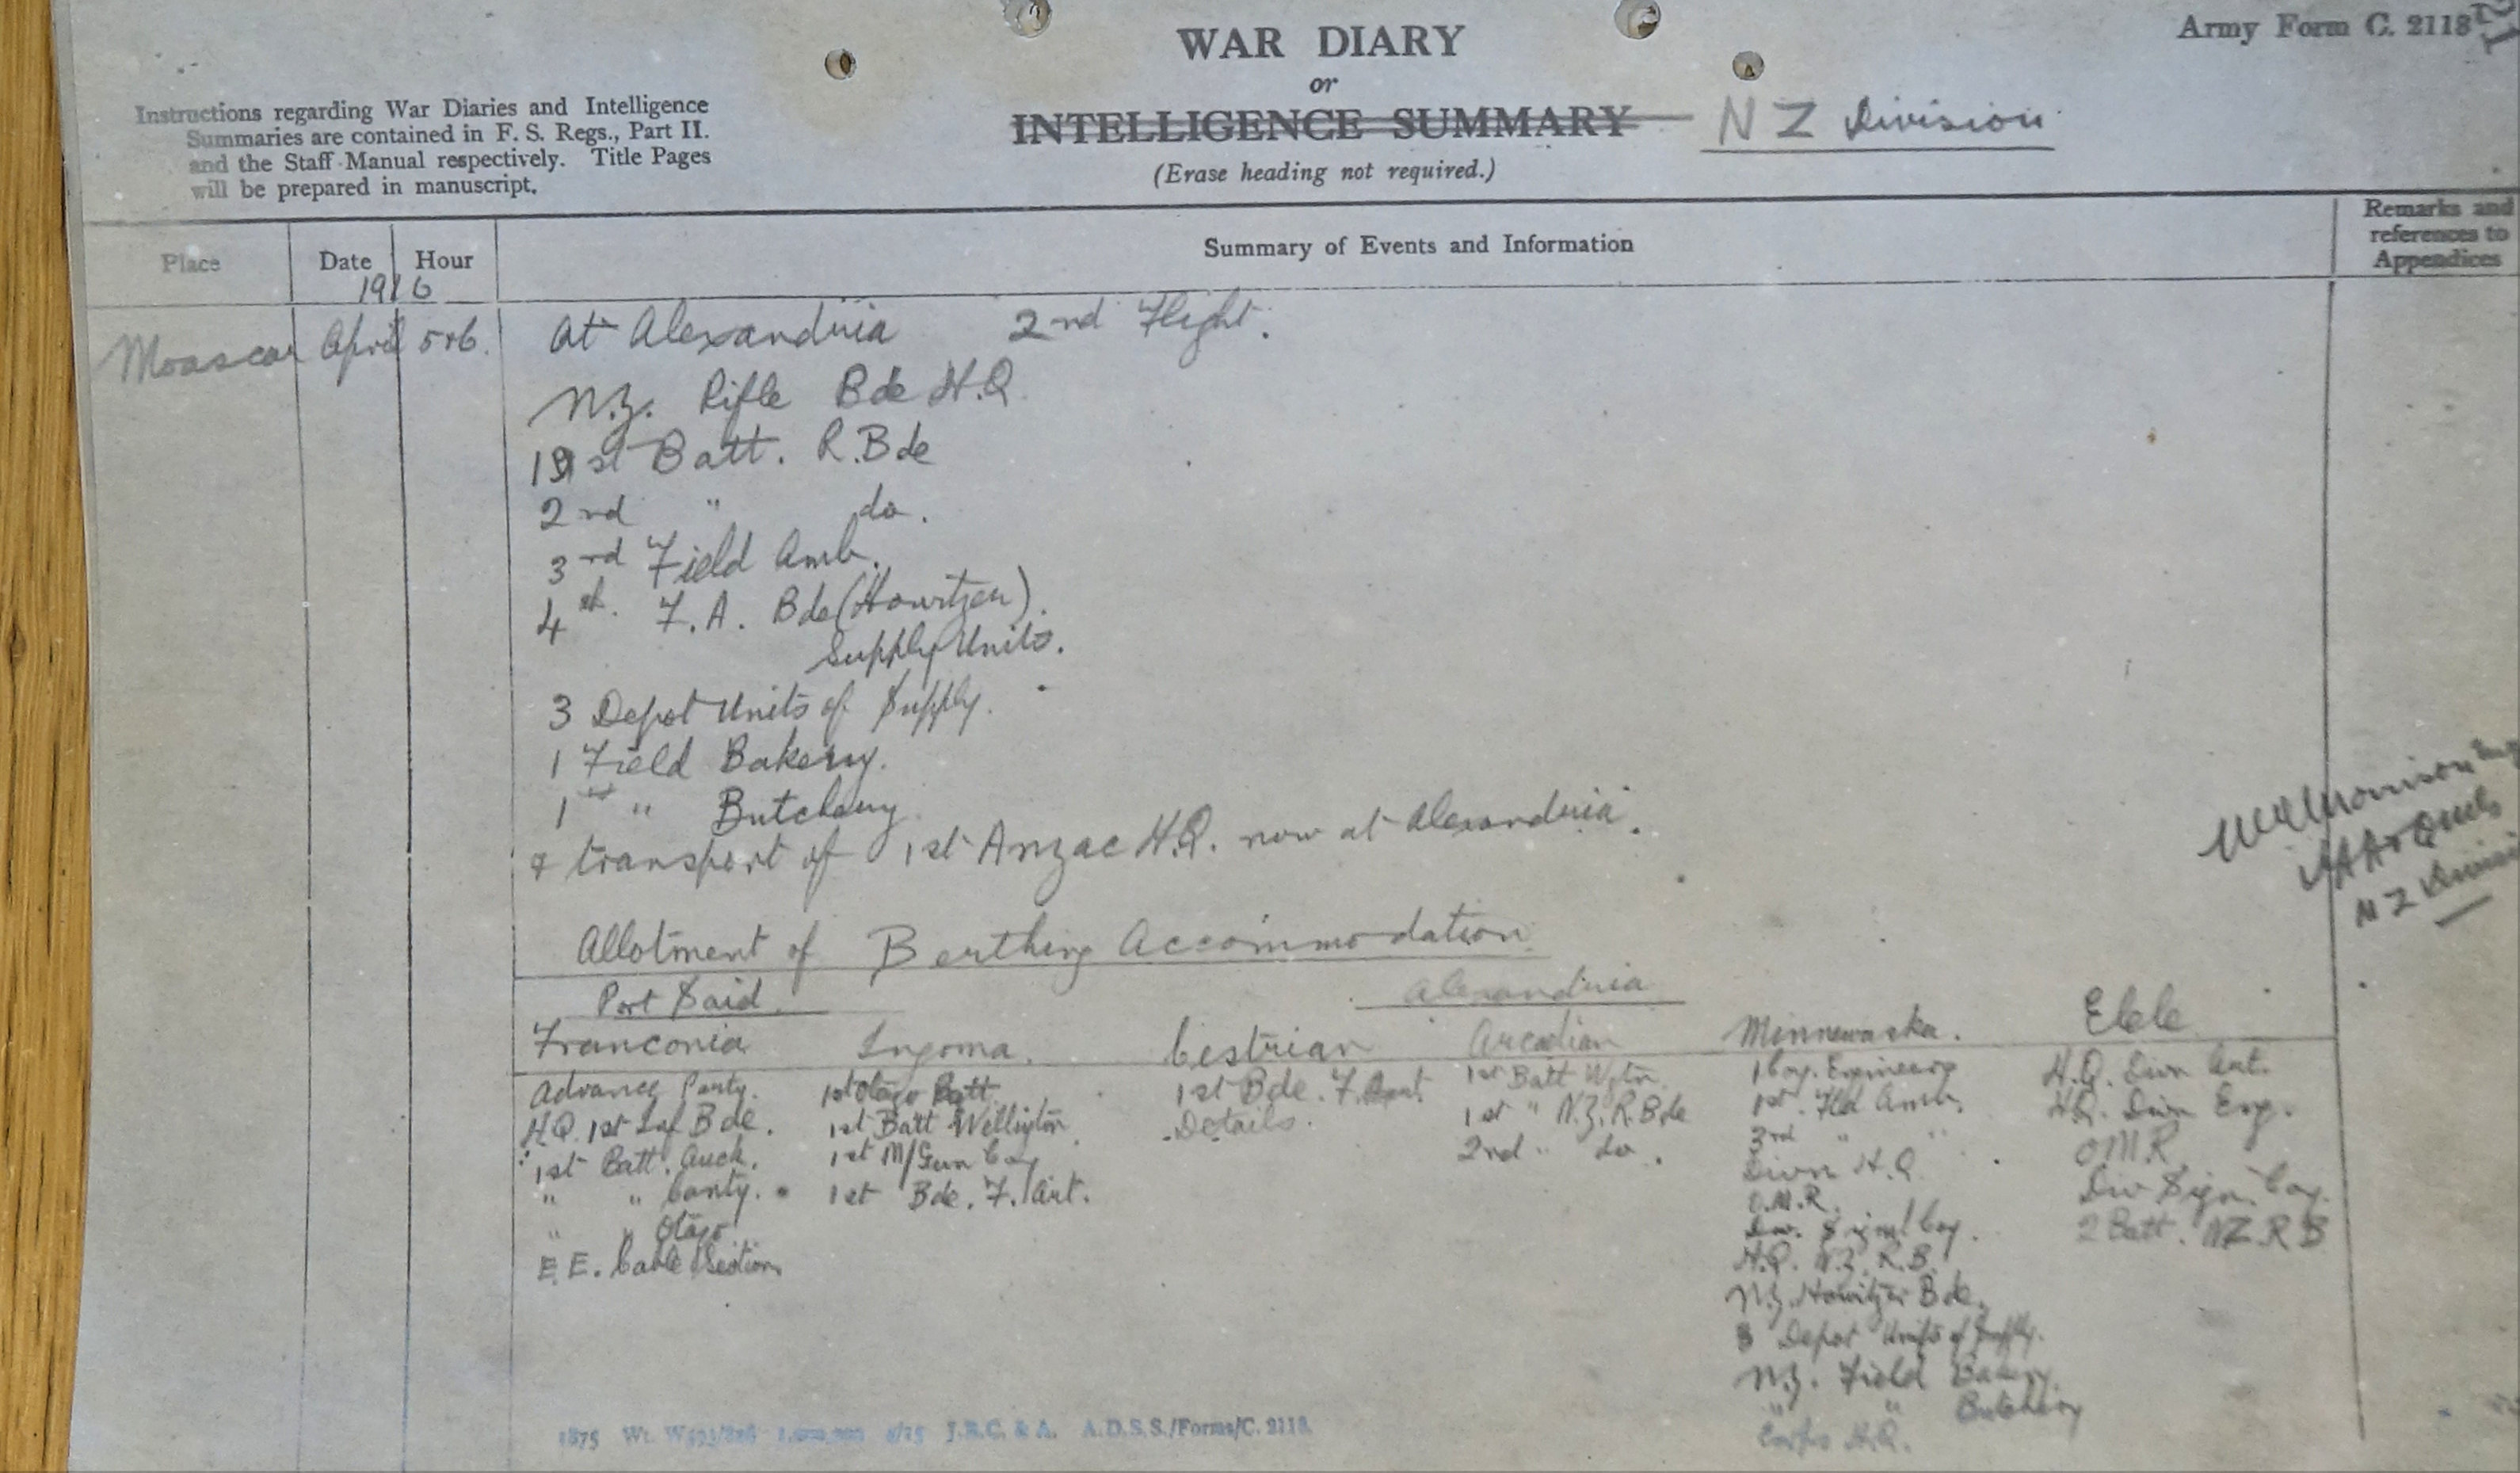 Army Form C. 2118
WAR DIARY
or
INTELLIGENCE SUMMARY
NZ Division
(Erase heading not required.)
Instructions regarding War Diaries and Intelligence
Summaries are contained in F. S. Regs., Part II.
and the Staff Manual respectively. Title Pages
will be prepared in manuscript.
Place
Date
Hour
Summary of Events and Information
Remarks and
references to
Appendices
1916
Moascar April 5+6.
At Alexandria 2nd Flight.
N.Z. Rifle Bde H.Q.
1st Batt. R.Bde
2nd " do.
3rd Field Amb.
4th. F.A. Bde (Howitzer).
Supply Units.
3 Depot Units of Supply.
1 Field Bakery.
1 " Butchery
& transport of 1st Anzac H.Q. now at Alexandria.
NZ Division
Allotment of Berthing Accommodation
Port Said.
Alexandria
Franconia Ingoma. Cestrian Arcadian Minnewaska. Elele
Advance Party.
H.Q. 1st Inf Bde.
1st Batt. Auck.
" " Canty.
" " Otago
E.E. Cable Section
1st Otago Batt.
1st Batt Wellington
1st M/Gun Coy
1st Bde. F. Art.
1st Bde. F. Art
Details.
1st Batt Wgtn.
1st " N.Z.R.Bde
2nd " do.
1 Coy. Engineers
1st. Fld Amb.
3rd " "
Divn H.Q.
O.M.R.
Div. Signal Coy.
H.Q. N.Z. R.B.
N.Z. Howitzer Bde.
3 Depot Units of Supply.
N.Z. Field Bakery.
" " Butchery
Corps H.Q.
H.Q. Divn Art.
H.Q. Divn Eng.
OMR
Div Sign. Coy.
2 Batt. NZ.R B
1875 Wt. W593/826 1,000,000 4/15 J.B.C. & A. A.D.S.S./Forms/C. 2118.